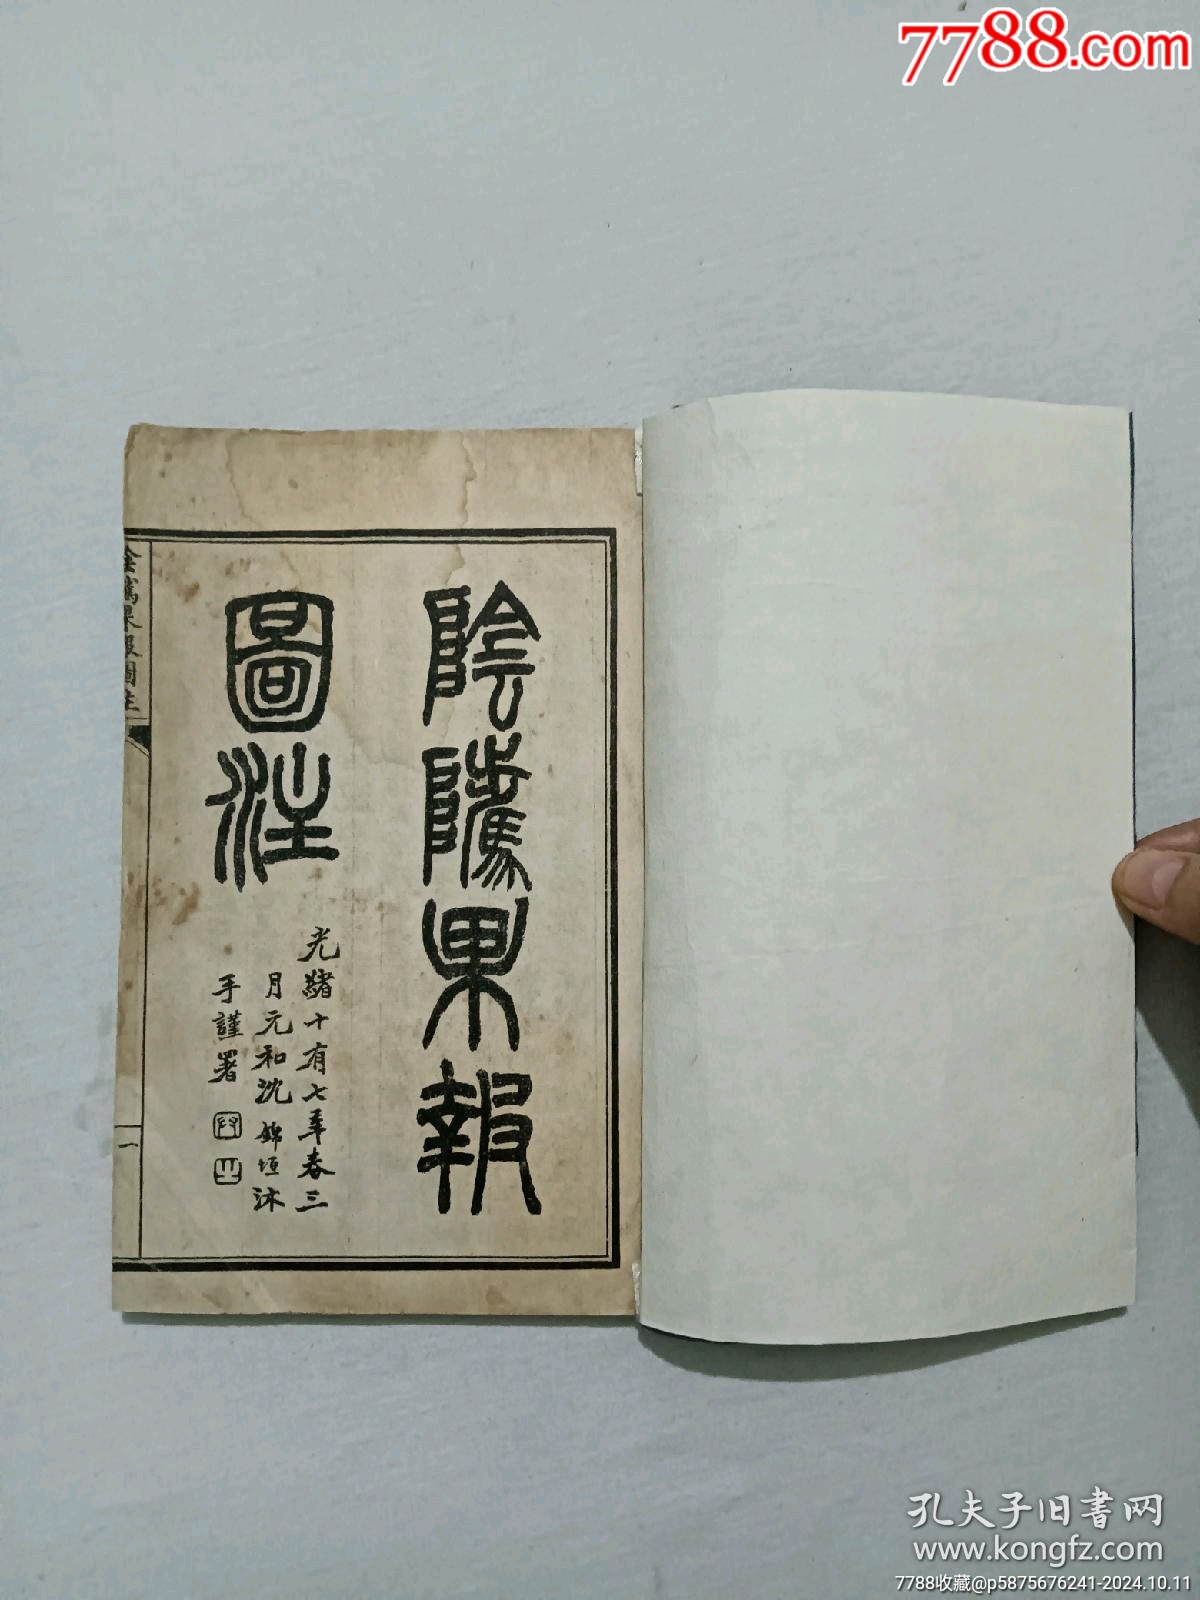 7788.com
陰騭果報
圖注
光緒十有七年春三
月元和沈錦垣沐
手謹署
陰騭果報圖注
一
孔夫子旧书网
www.kongfz.com
7788收藏@p5875676241-2024.10.11